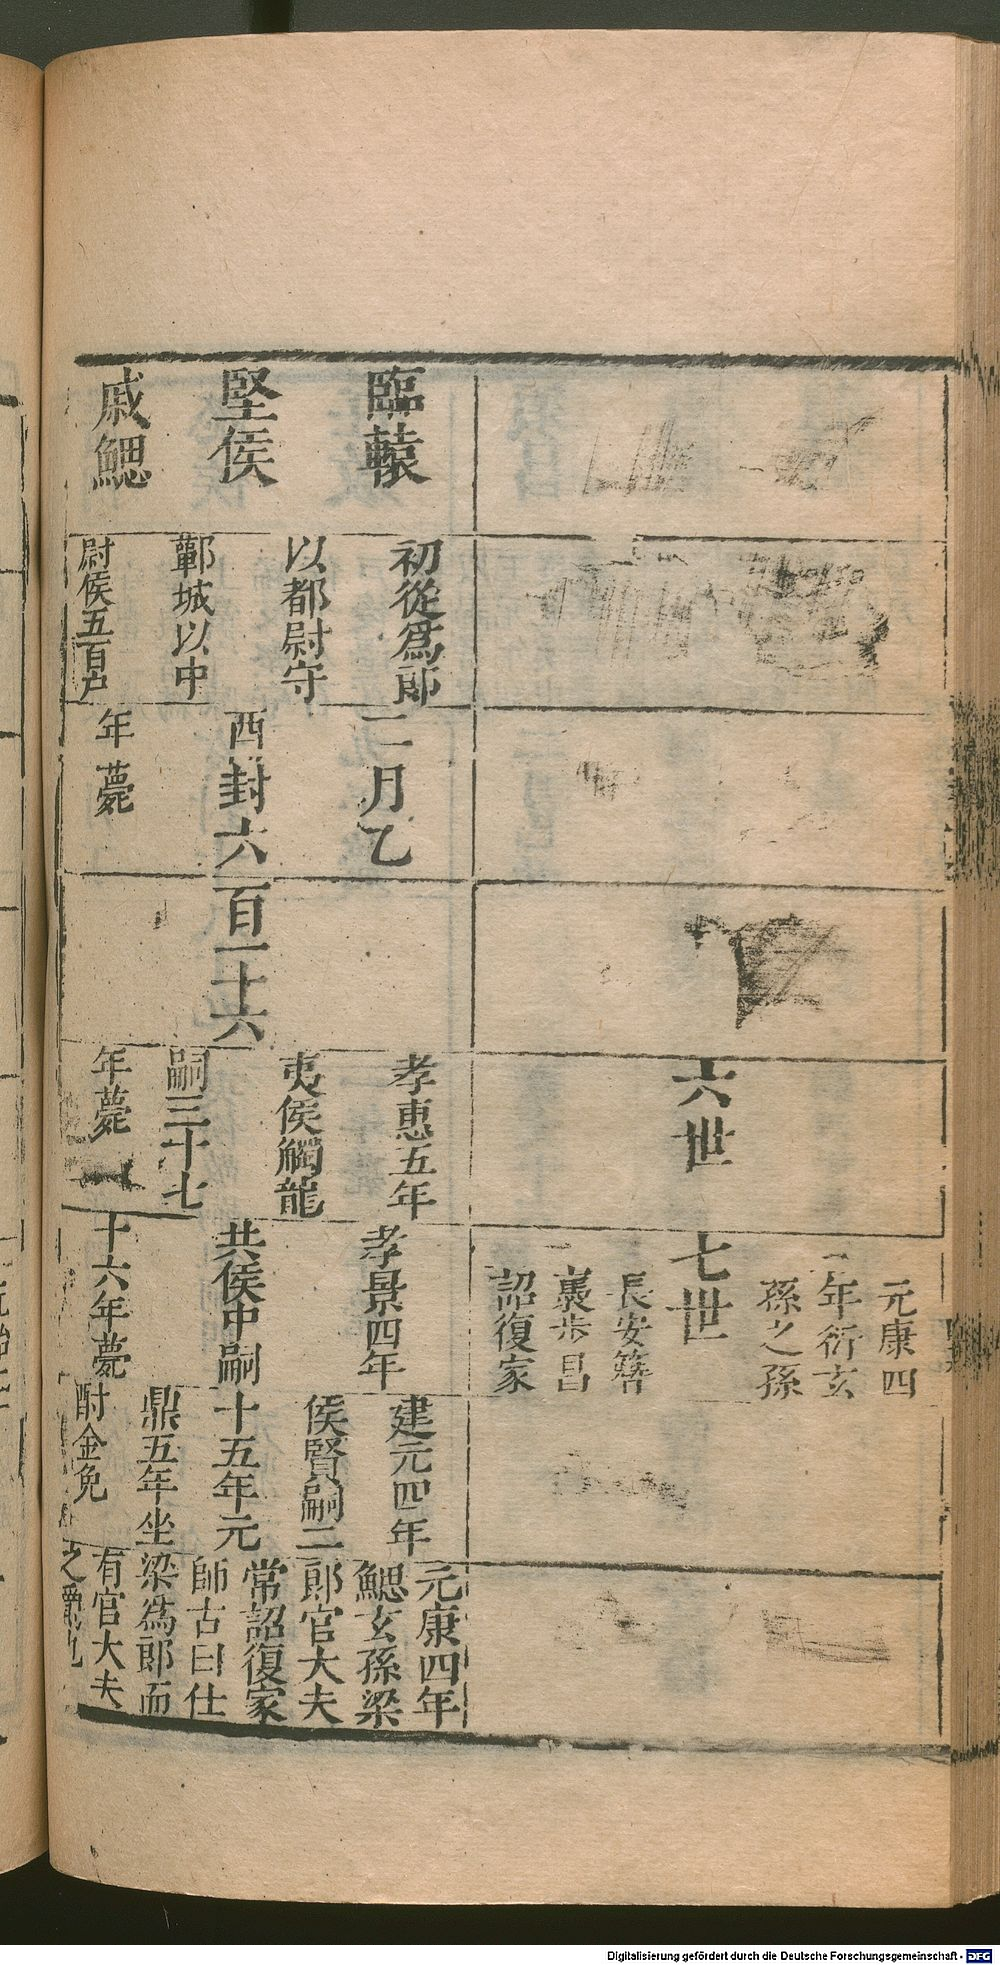 六世
七世
元康四
年衍玄
孫之孫
長安簪
裹步昌
詔復家
臨轅
堅侯
戚鰓
初從爲郎
以都尉守
蘄城以中
尉侯五百戶
二月乙
酉封六
百一十六
年薨
孝惠五年
夷侯觸龍
嗣三十七
年薨
孝景四年
共侯中嗣
十六年薨
建元四年
侯賢嗣二
十五年元
鼎五年坐
酎金免
元康四年
鰓玄孫梁
郎官大夫
常詔復家
師古曰仕
梁爲郎而
有官大夫
之爵也
Digitalisierung gefördert durch die Deutsche Forschungsgemeinschaft - DFG